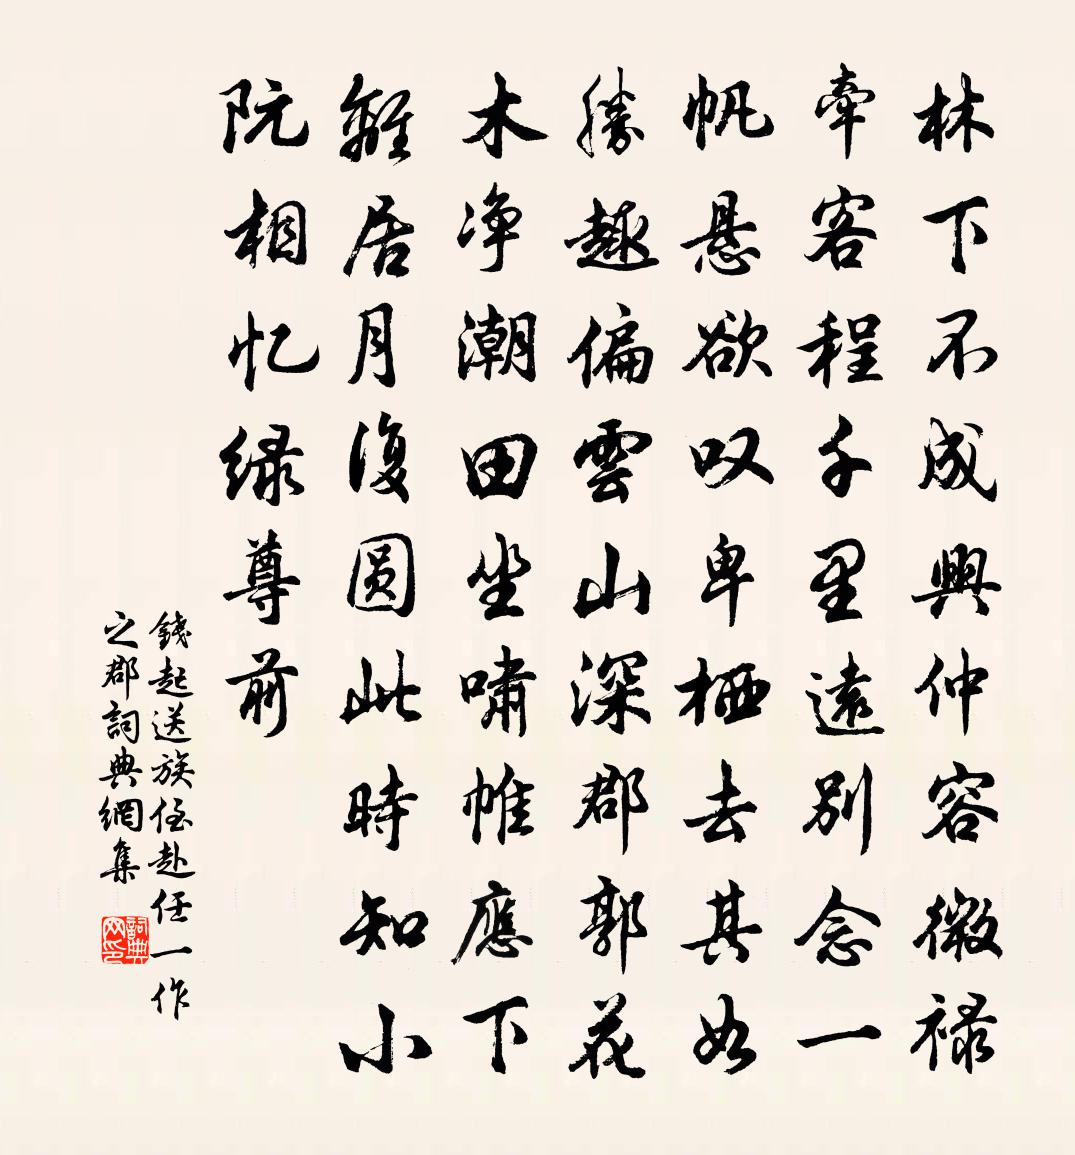 林下不成興仲容微禄
牽客程千里遠別念一
帆悬欲叹卑栖去其如
勝趣偏雲山深郡郭花
木净潮田坐啸帷應下
離居月復圆此時知小
阮相忆绿尊前
錢起送族侄赴任一作
之郡詞典網集
詞典网印